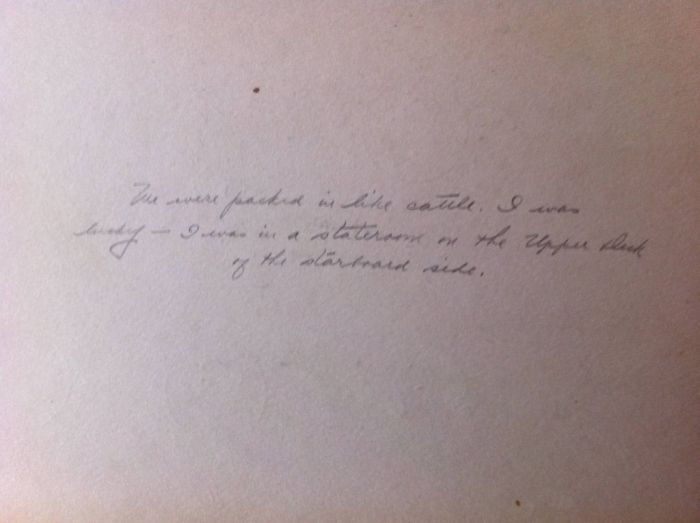 We were packed in like cattle. I was
lucky — I was in a stateroom on the Upper Deck
of the starboard side.